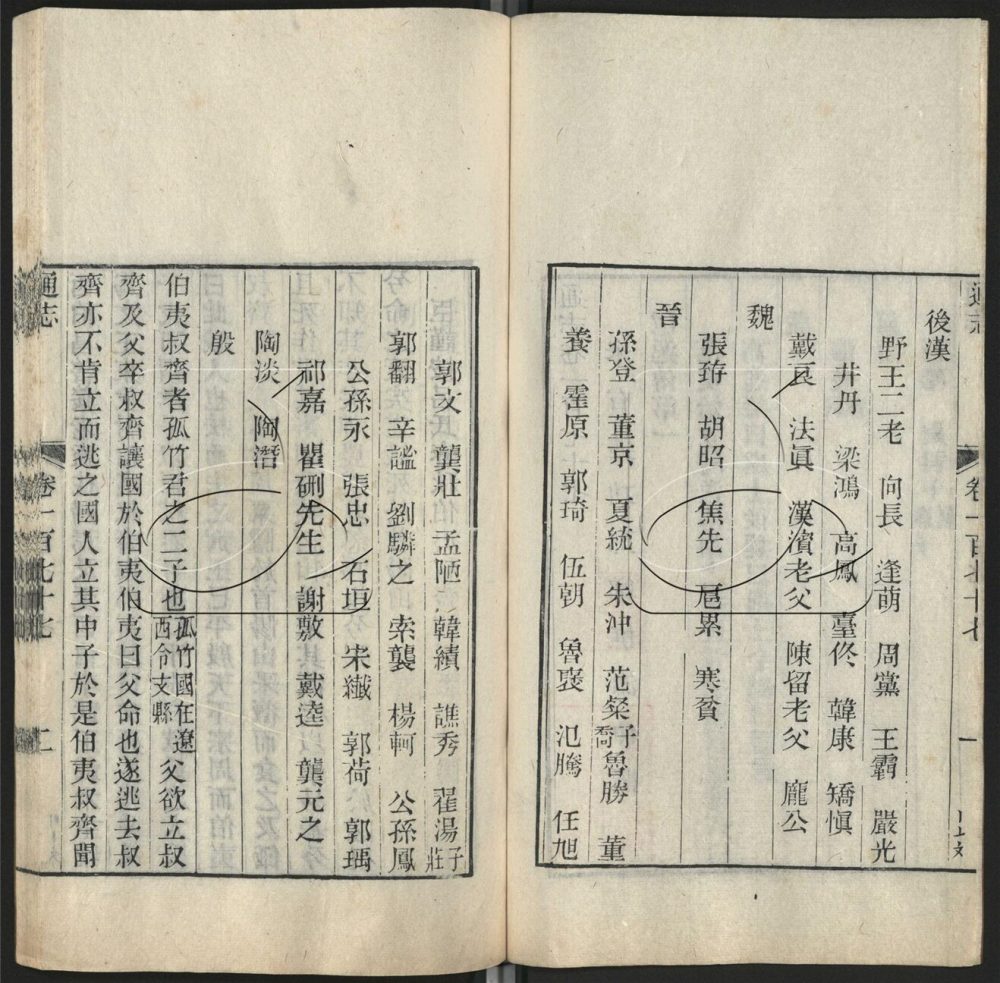 通志
卷一百七十七
一
後漢
野王二老 向長 逢萌 周黨 王霸 嚴光
井丹 梁鴻 高鳳 臺佟 韓康 矯慎
戴良 法眞 漢濱老父 陳留老父 龐公
魏
張臶 胡昭 焦先 扈累 寒貧
晉
孫登 董京 夏統 朱沖 范粲子喬 魯勝 董
養 霍原 郭琦 伍朝 魯褒 氾騰 任旭
郭文 龔壯 孟陋 韓績 譙秀 翟湯子莊
郭翻 辛謐 劉驎之 索襲 楊軻 公孫鳳
公孫永 張忠 石垣 宋纖 郭荷 郭瑀
祁嘉 瞿硎先生 謝敷 戴逵 龔元之
陶淡 陶潛
殷
伯夷叔齊者孤竹君之二子也孤竹國在遼西令支縣父欲立叔
齊及父卒叔齊讓國於伯夷伯夷曰父命也遂逃去叔
齊亦不肯立而逃之國人立其中子於是伯夷叔齊聞
通志
卷一百七十七
二